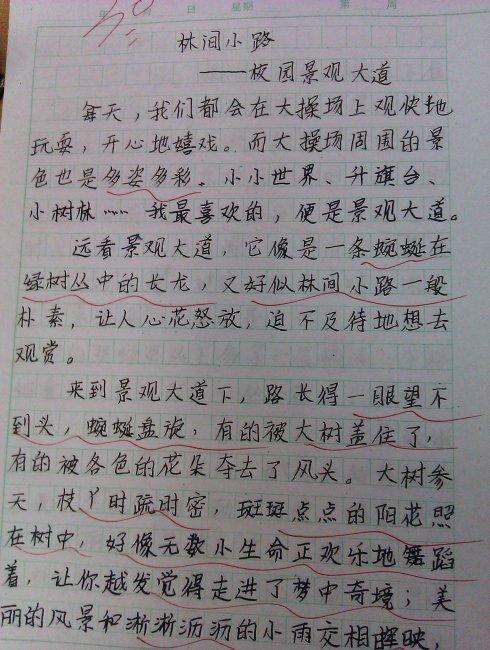 年 月 日 星期 第 周
林间小路
——校园景观大道
每天，我们都会在大操场上欢快地
玩耍，开心地嬉戏。而大操场周围的景
色也是多姿多彩。小小世界、升旗台、
小树林…… 我最喜欢的，便是景观大道。
远看景观大道，它像是一条蜿蜒在
绿树丛中的长龙，又好似林间小路一般
朴素，让人心花怒放，迫不及待地想去
观赏。
来到景观大道下，路长得一眼望不
到头，蜿蜒盘旋，有的被大树盖住了，
有的被各色的花朵夺去了风头。大树参
天，枝丫时疏时密，斑斑点点的阳花照
在树中，好像无数小生命正欢乐地舞蹈
着，让你越发觉得走进了梦中奇境；美
丽的风景和淅淅沥沥的小雨交相晖映，